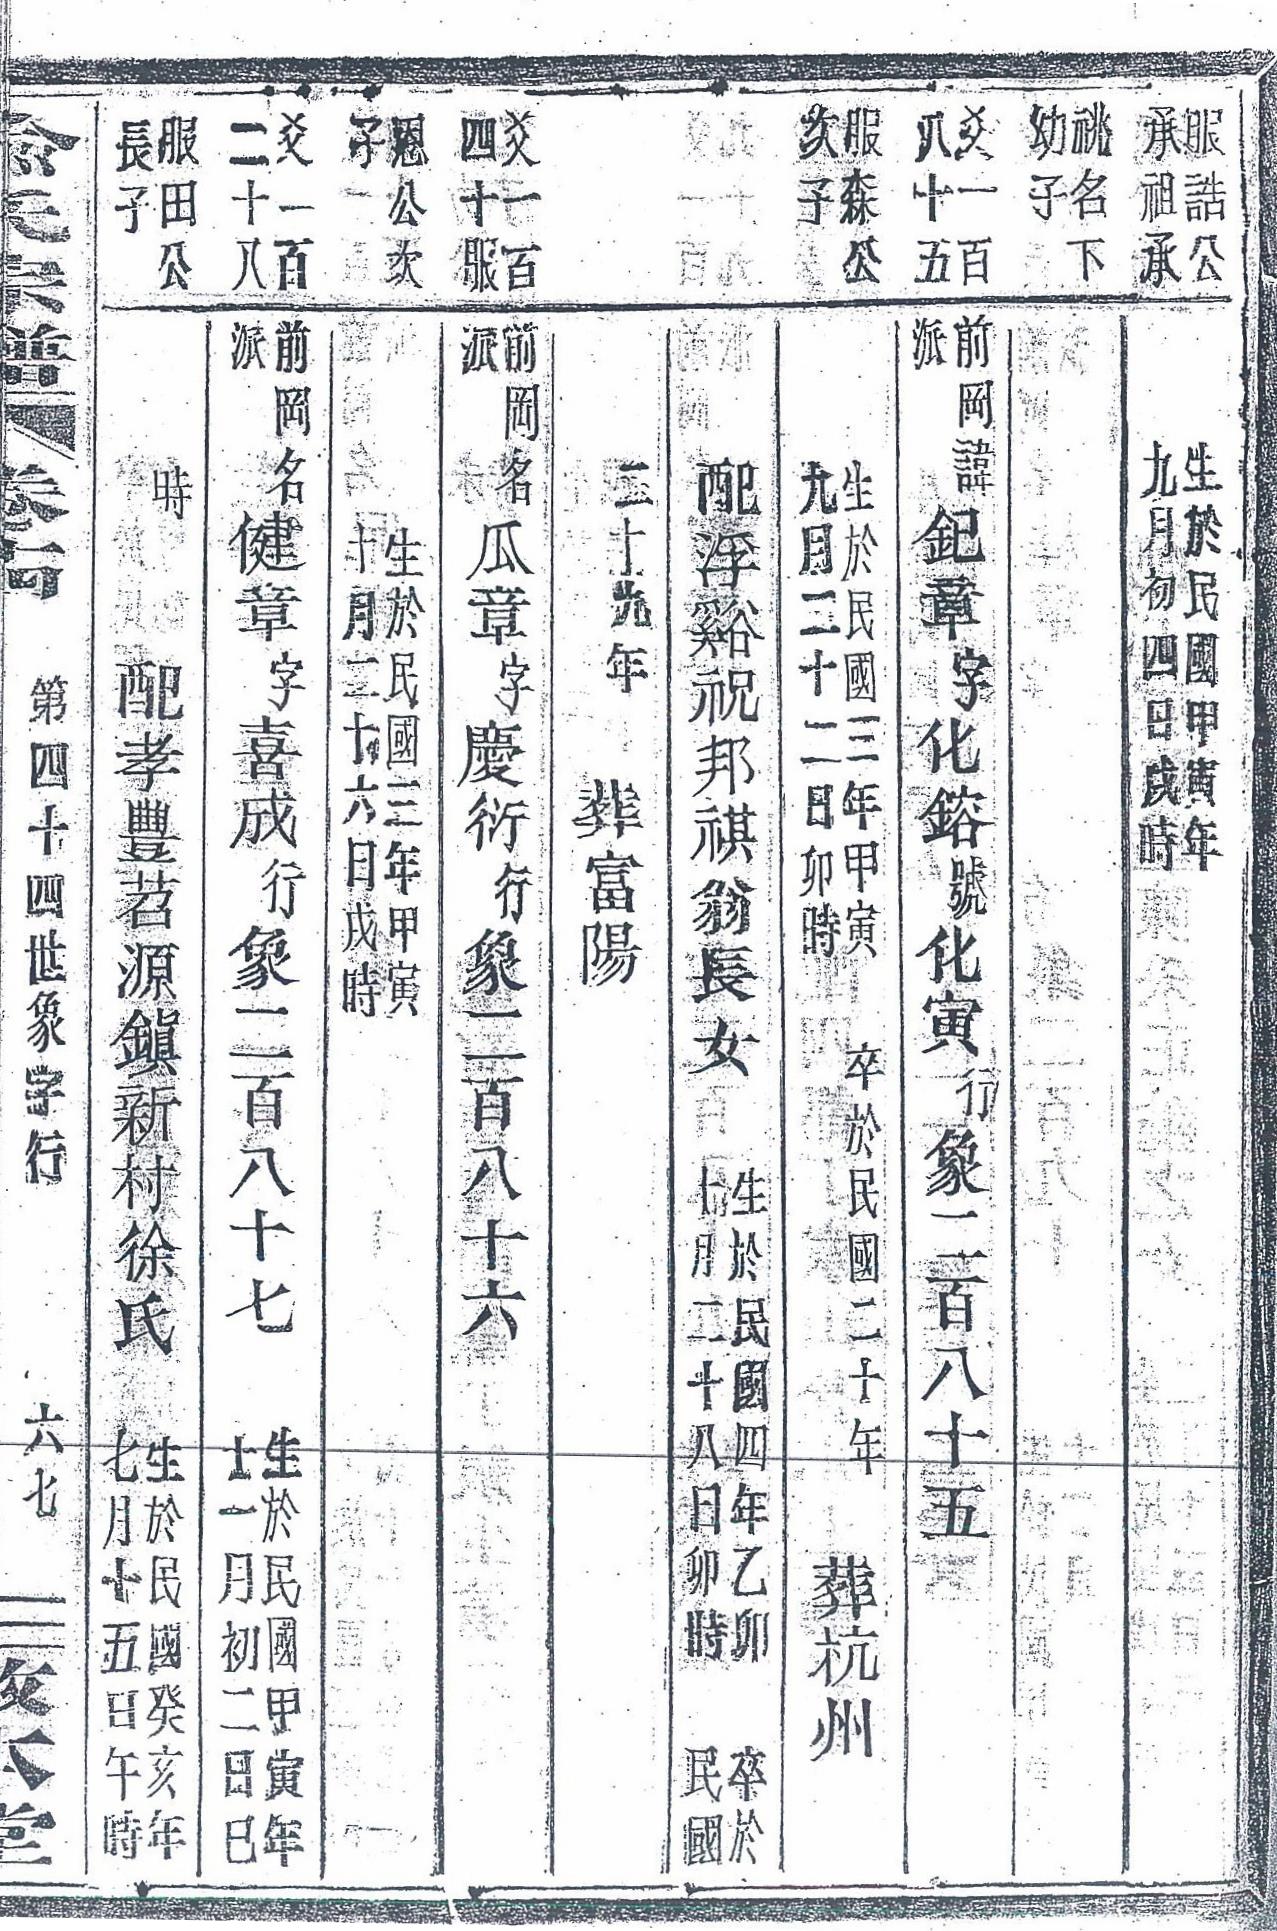 服誥公
承祖承
祧名下
幼子
生於民國甲寅年
九月初四日戌時
爻一百
八十五
服森公
次子
前岡
派
諱
鈀章
字
化鎔
號
化寅
行
象二百八十五
生於民國三年甲寅
九月二十二日卯時
卒於民國二十年
葬杭州
配浮谿祝邦祺翁長女
生於民國四年乙卯
十月二十八日卯時
卒於
民國
二十九年
葬富陽
爻一百
四十服
恩公次
子
前岡名
派
瓜章
字
慶衍
行
象二百八十六
生於民國三年甲寅
十月二十六日戌時
爻一百
二十八
服田公
長子
前岡名
派
健章
字
喜成
行
象二百八十七
生於民國甲寅年
十一月初二日巳
時
配孝豐苕源鎮新村徐氏
生於民國癸亥年
七月十五日午時
氏宗譜
第四十四世象字行
六七